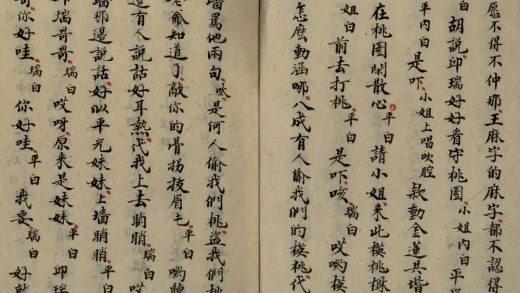 愿不得不仲那王麻字的麻字都不認得
白 胡説邱瑞好好看守桃園 小姐內白 平
平內白 是吓 小姐上唱吹腔 款動金蓮其堦
在桃園閑散心 平白 請小姐来此模桃樹
姐白 前去打桃 平白 是吓咳 瑞白 哎喲模
怎麽動涵哪八成有人偷我們的模桃代
墻罵他兩句 吹 是何人偷我們桃盜我們桃
老爺知道了敲你的骨拐拔眉毛 平白 喲聽
這有人説話好耳熟代我上去睄睄 瑞白
墻那邊説話好似平兒妹妹上墻睄睄 平白
邱瑞哥哥 瑞白 哎呀原来是妹妹 平白 邱瑞
哥你好哇 瑞白 你好哇 平白 我要 瑞白 好